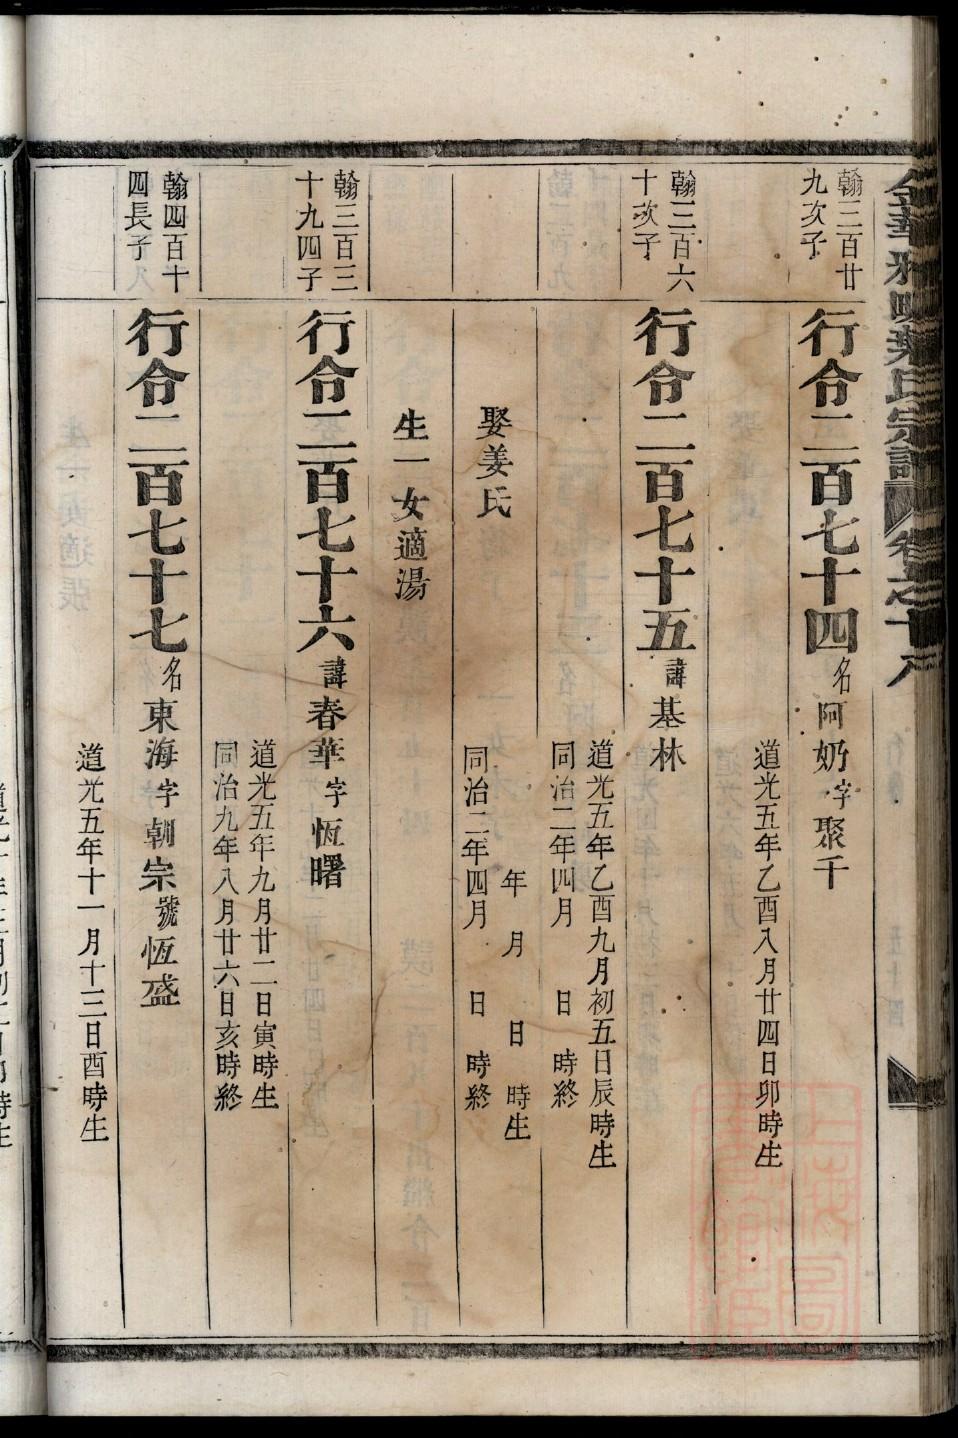 金華雅畈葉氏宗譜
卷之十八
翰三百廿
九次子
行令二百七十四名阿奶字聚千
道光五年乙酉八月廿四日卯時生
翰三百六
十次子
行令二百七十五諱基林
道光五年乙酉九月初五日辰時生
同治二年四月 日 時終
娶姜氏
年 月 日 時生
同治二年四月 日 時終
生一女適湯
翰三百三
十九四子
行令二百七十六諱春華字恆曙
道光五年九月廿二日寅時生
同治九年八月廿六日亥時終
翰四百十
四長子
行令二百七十七名東海字朝宗號恆盛
道光五年十一月十三日酉時生